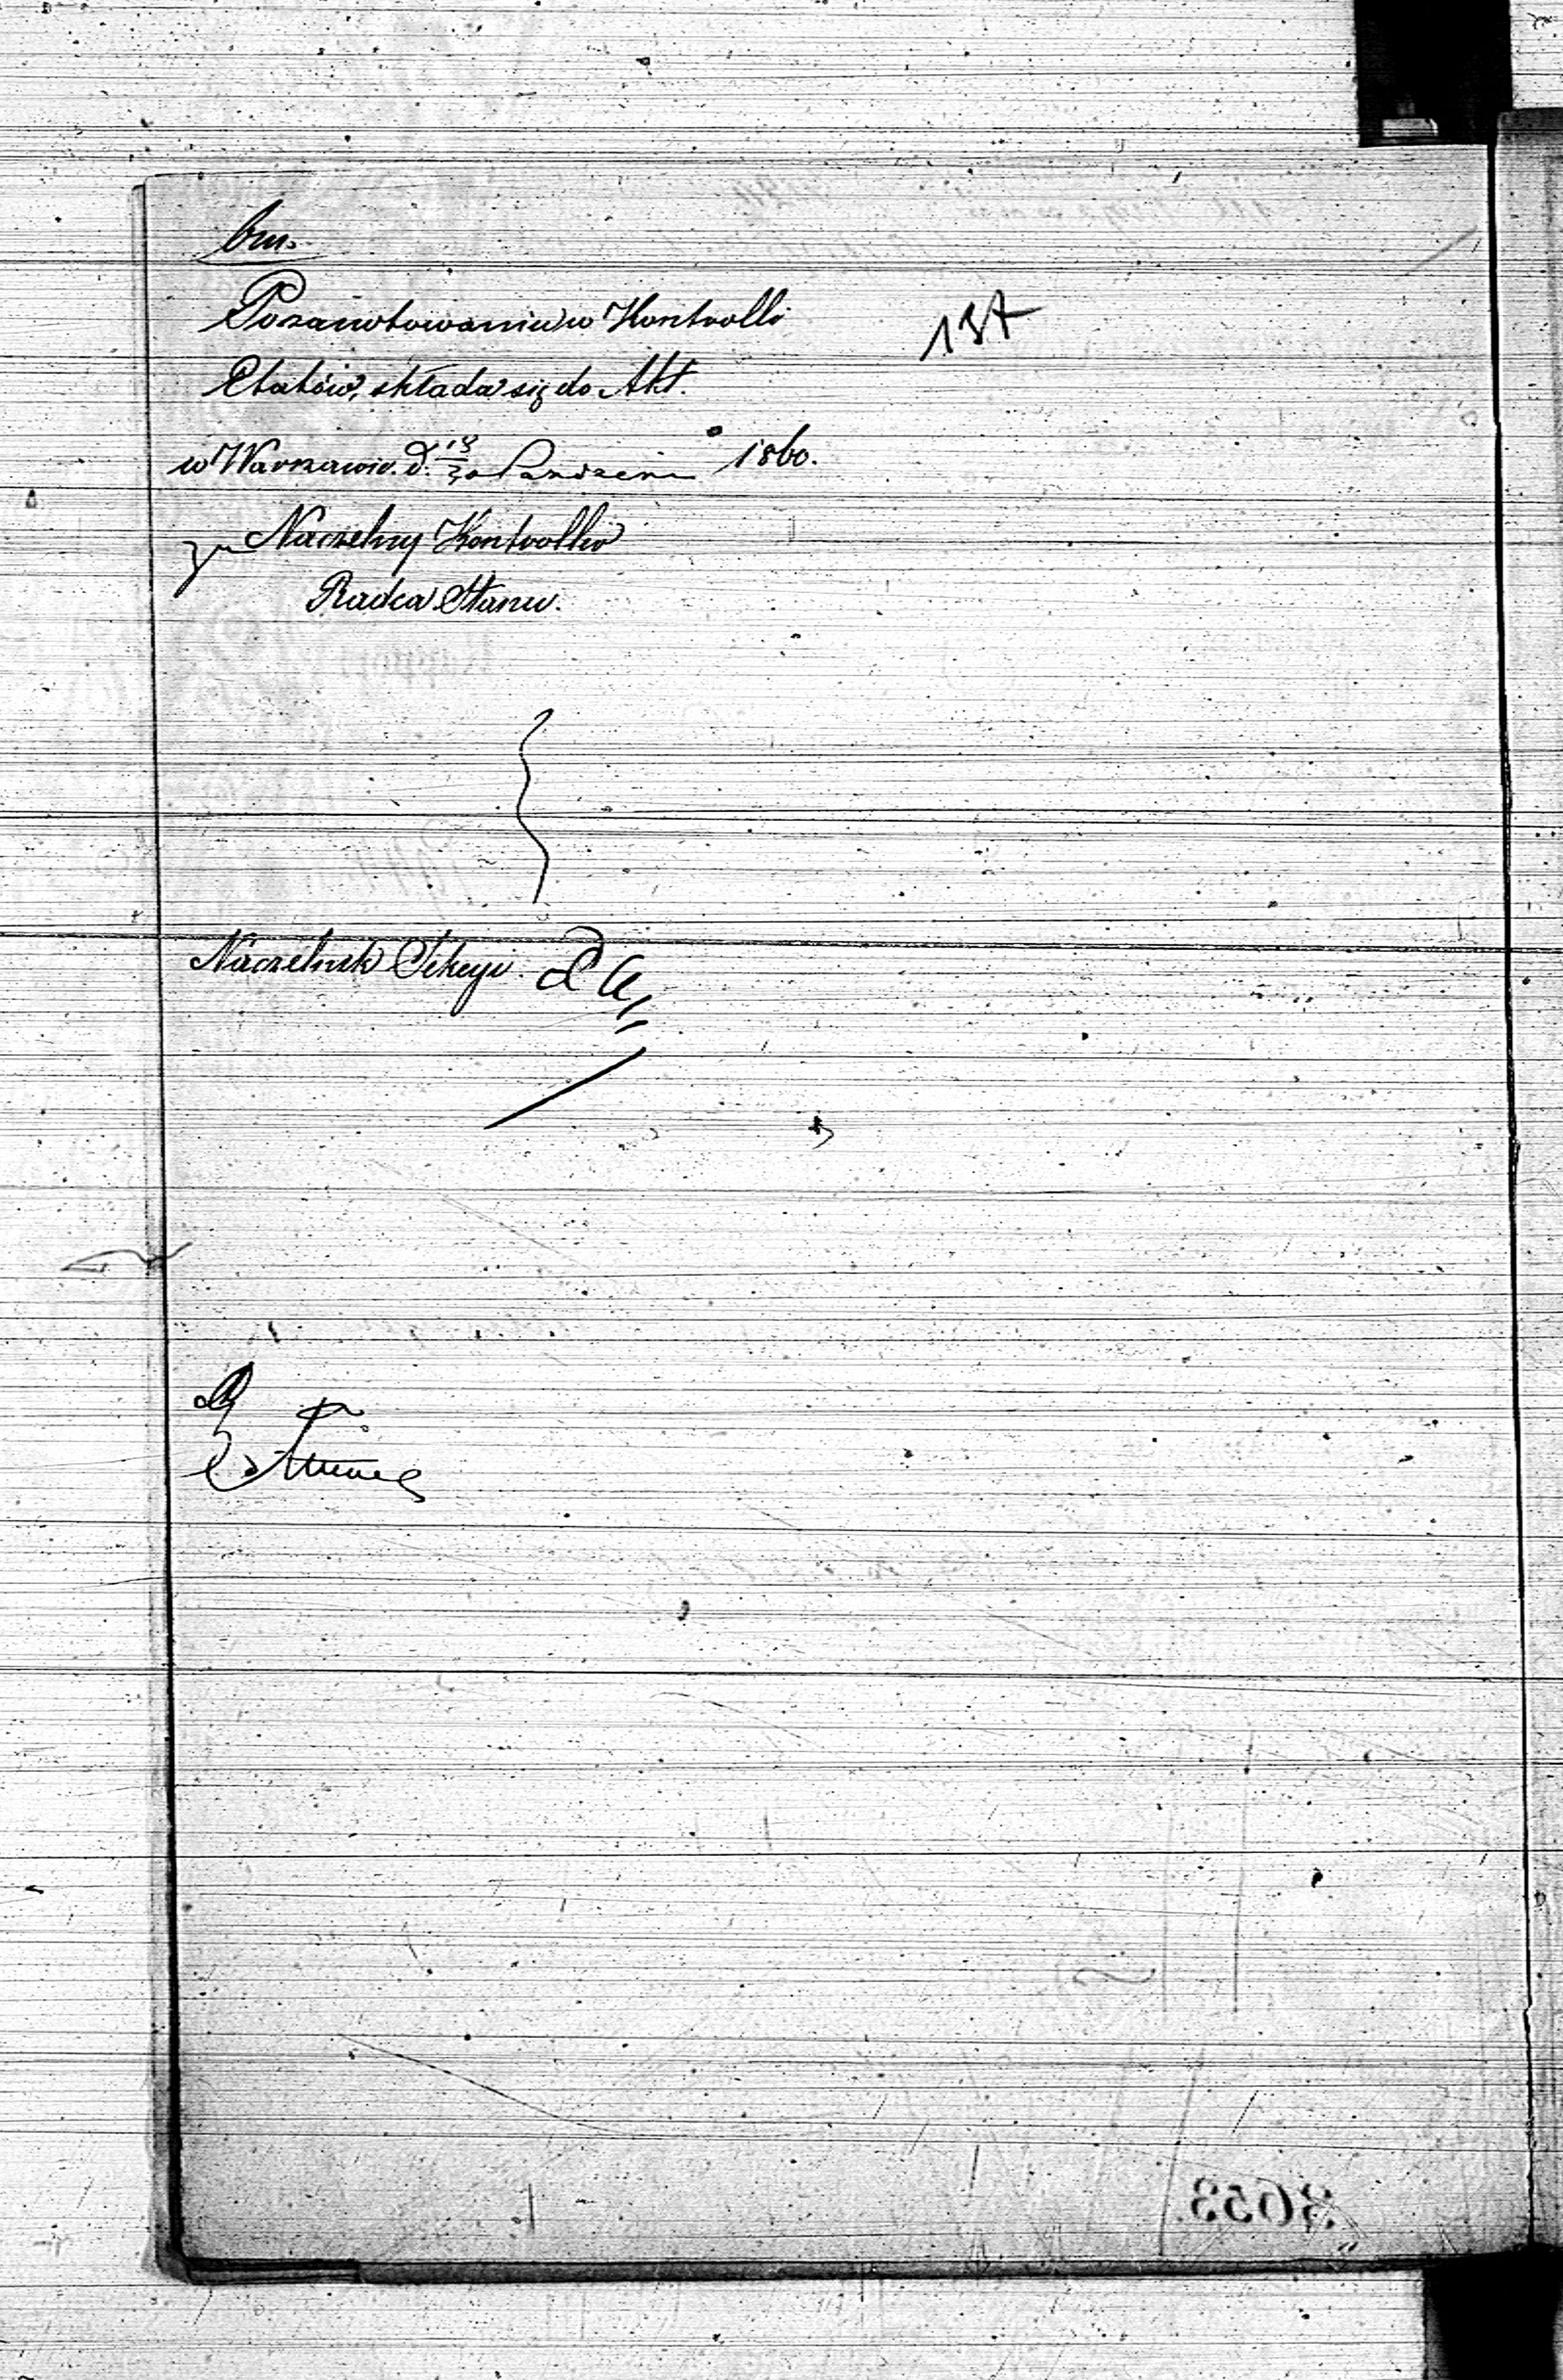 bm.
Pozanotowaniu w Kontrolli
137
Etatów, składa się do Akt.
w Warszawie d. 18/30 Październ 1860.
Naczelny Kontroller
Radca Stanu.
Naczelnik Sekcyi
3653